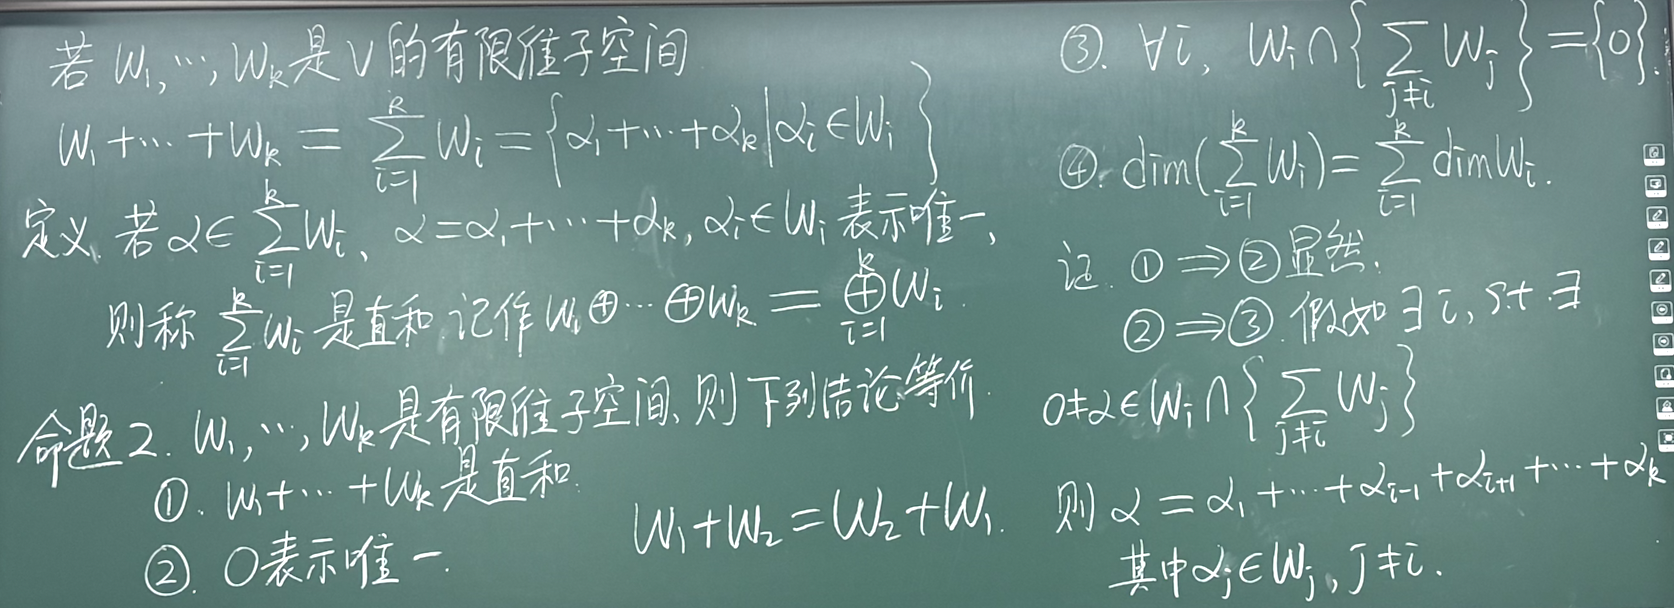 若 W₁, ⋯, Wₖ 是 V 的有限维子空间
W₁ + ⋯ + Wₖ = ∑_{i=1}^{k} Wᵢ = {α₁ + ⋯ + αₖ | αᵢ ∈ Wᵢ}
定义. 若 α ∈ ∑_{i=1}^{k} Wᵢ, α = α₁ + ⋯ + αₖ, αᵢ ∈ Wᵢ 表示唯一,
则称 ∑_{i=1}^{k} Wᵢ 是直和. 记作 W₁ ⊕ ⋯ ⊕ Wₖ = ⊕_{i=1}^{k} Wᵢ.
命题2. W₁, ⋯, Wₖ 是有限维子空间, 则下列结论等价.
①. W₁ + ⋯ + Wₖ 是直和.
②. 0表示唯一.
W₁ + W₂ = W₂ + W₁.
③. ∀i, Wᵢ ∩ {∑_{j≠i} Wⱼ} = {0}.
④. dim(∑_{i=1}^{k} Wᵢ) = ∑_{i=1}^{k} dim Wᵢ.
证. ① ⇒ ② 显然.
② ⇒ ③. 假如 ∃ i, s.t. ∃
0 ≠ α ∈ Wᵢ ∩ {∑_{j≠i} Wⱼ}
则 α = α₁ + ⋯ + αᵢ₋₁ + αᵢ₊₁ + ⋯ + αₖ
其中 αⱼ ∈ Wⱼ, j ≠ i.